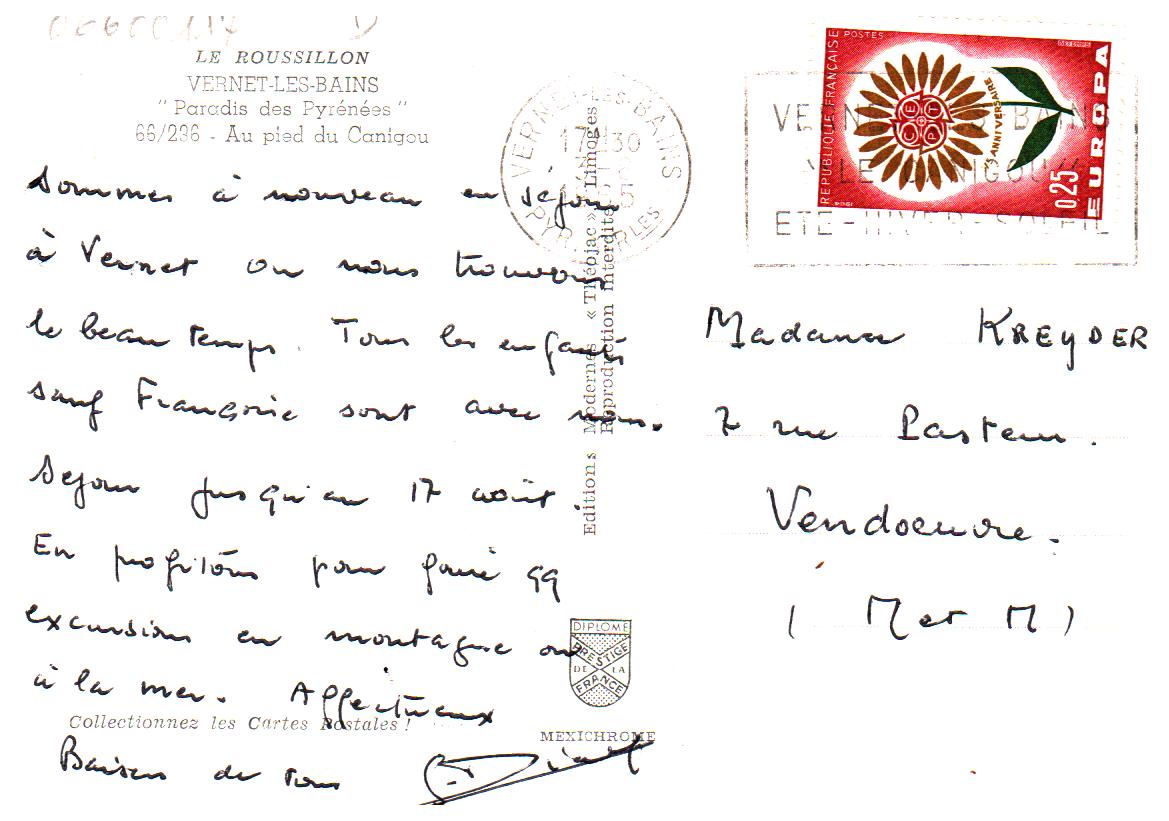 LE ROUSSILLON
VERNET-LES-BAINS
"Paradis des Pyrénées"
66/296 - Au pied du Canigou
Sommes à nouveau en séjour
à Vernet où nous trouvons
le beau temps. Tous les enfants
sauf Françoise sont avec nous.
Séjour jusqu'au 17 août.
En profitons pour faire qq
excursions en montagne ou
à la mer. Affectueux
Baisers de tous
Collectionnez les Cartes Postales !
Editions Modernes « Théojac » Limoges
Reproduction interdite
DIPLOME
PRESTIGE
DE LA
FRANCE
MEXICHROME
VERNET-LES-BAINS
17H30
PYR. ORLES
VERNET-LES-BAINS
"LE CANIGOU"
ETE-HIVER-SOLEIL
REPUBLIQUE FRANÇAISE
POSTES
CEPT
5e ANNIVERSAIRE
0,25
EUROPA
Madame KREYDER
7 rue Pasteur.
Vendoeuvre.
( M et M )